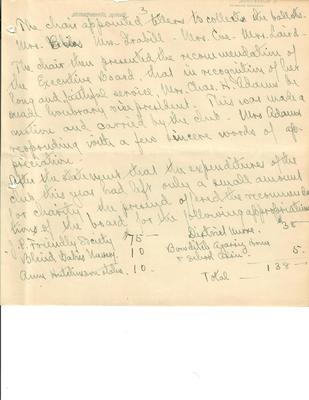 3
The chair appointed tellers to collect the ballots.
Mrs. Mrs. Frabill - Mrs. Coe - Mrs. Laird -
The chair then presented the recommendation of
the Executive Board, that in recognition of her
long and faithful service, Mrs. Chas. H. Adams be
made honorary vice president. This was made a
motion and carried by the club - Mrs Adams
responding with a few sincere words of ap-
preciation.
After the statement that the expenditures of the
club, this year had left only a small amount
for charity the presented the recommenda
tions of the board for the following appropriations
J. P. Friendly Society $75 - District Nurse. $38
Blind Babies Nursery. 10 Bowditch Spring
Anne Hutchinson statue. 10. & School 5.
Total — 138 —